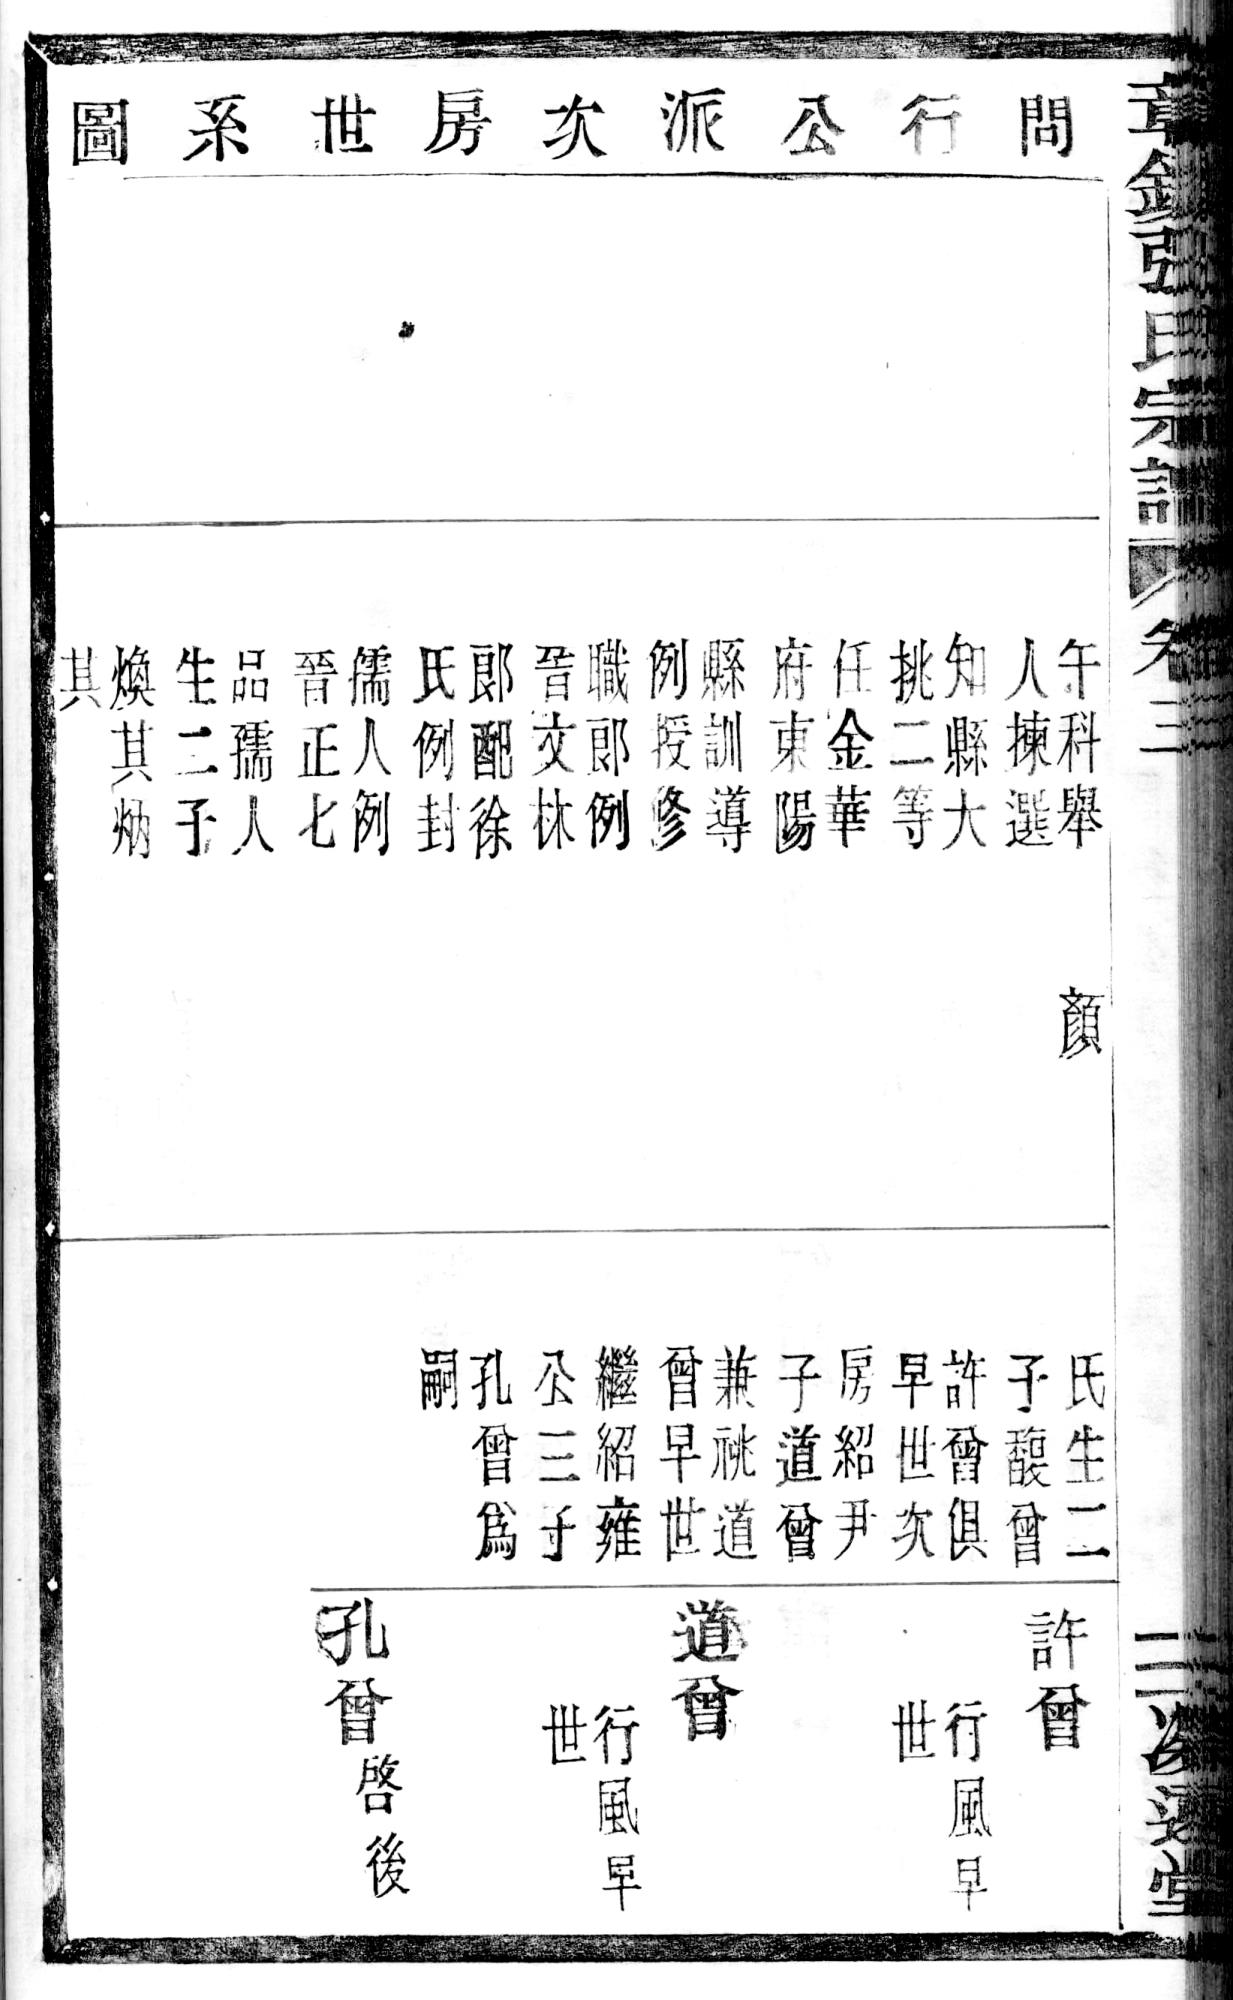 問行公派次房世系圖
午科舉
人揀選
知縣大
挑二等
任金華
府東陽
縣訓導
例授修
職郎例
晉文林
郎配徐
氏例封
孺人例
晉正七
品孺人
生二子
煥其炳
其
顏
氏生二
子馥曾
許曾俱
早世次
房紹尹
子道曾
兼祧道
曾早世
繼紹雍
公三子
孔曾為
嗣
許曾
行風早
世
道曾
行風早
世
孔曾
啓後
氏宗譜
卷三